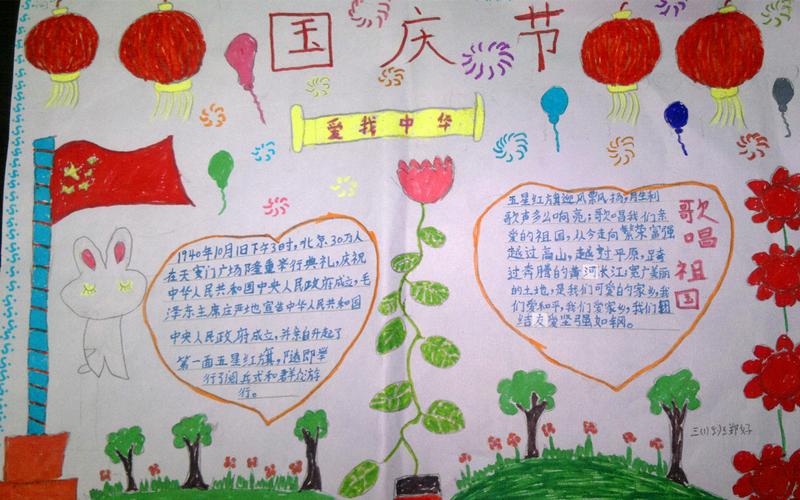 国庆节
爱我中华
1940年10月1日下午3时,北京30万人
在天安门广场隆重举行典礼,庆祝
中华人民共和国中央人民政府成立,毛
泽东主席庄严地宣告中华人民共和国
中央人民政府成立,并亲自升起了
第一面五星红旗,随即举
行了阅兵式和群众游
行。
歌唱祖国
五星红旗迎风飘扬,胜利
歌声多么响亮;歌唱我们亲
爱的祖国,从今走向繁荣富强
越过高山,越过平原,
过奔腾的黄河长江;宽广美丽
的土地,是我们可爱的家乡,我
们爱和平,我们爱家乡,我们
结友爱坚强如钢。
三(1)